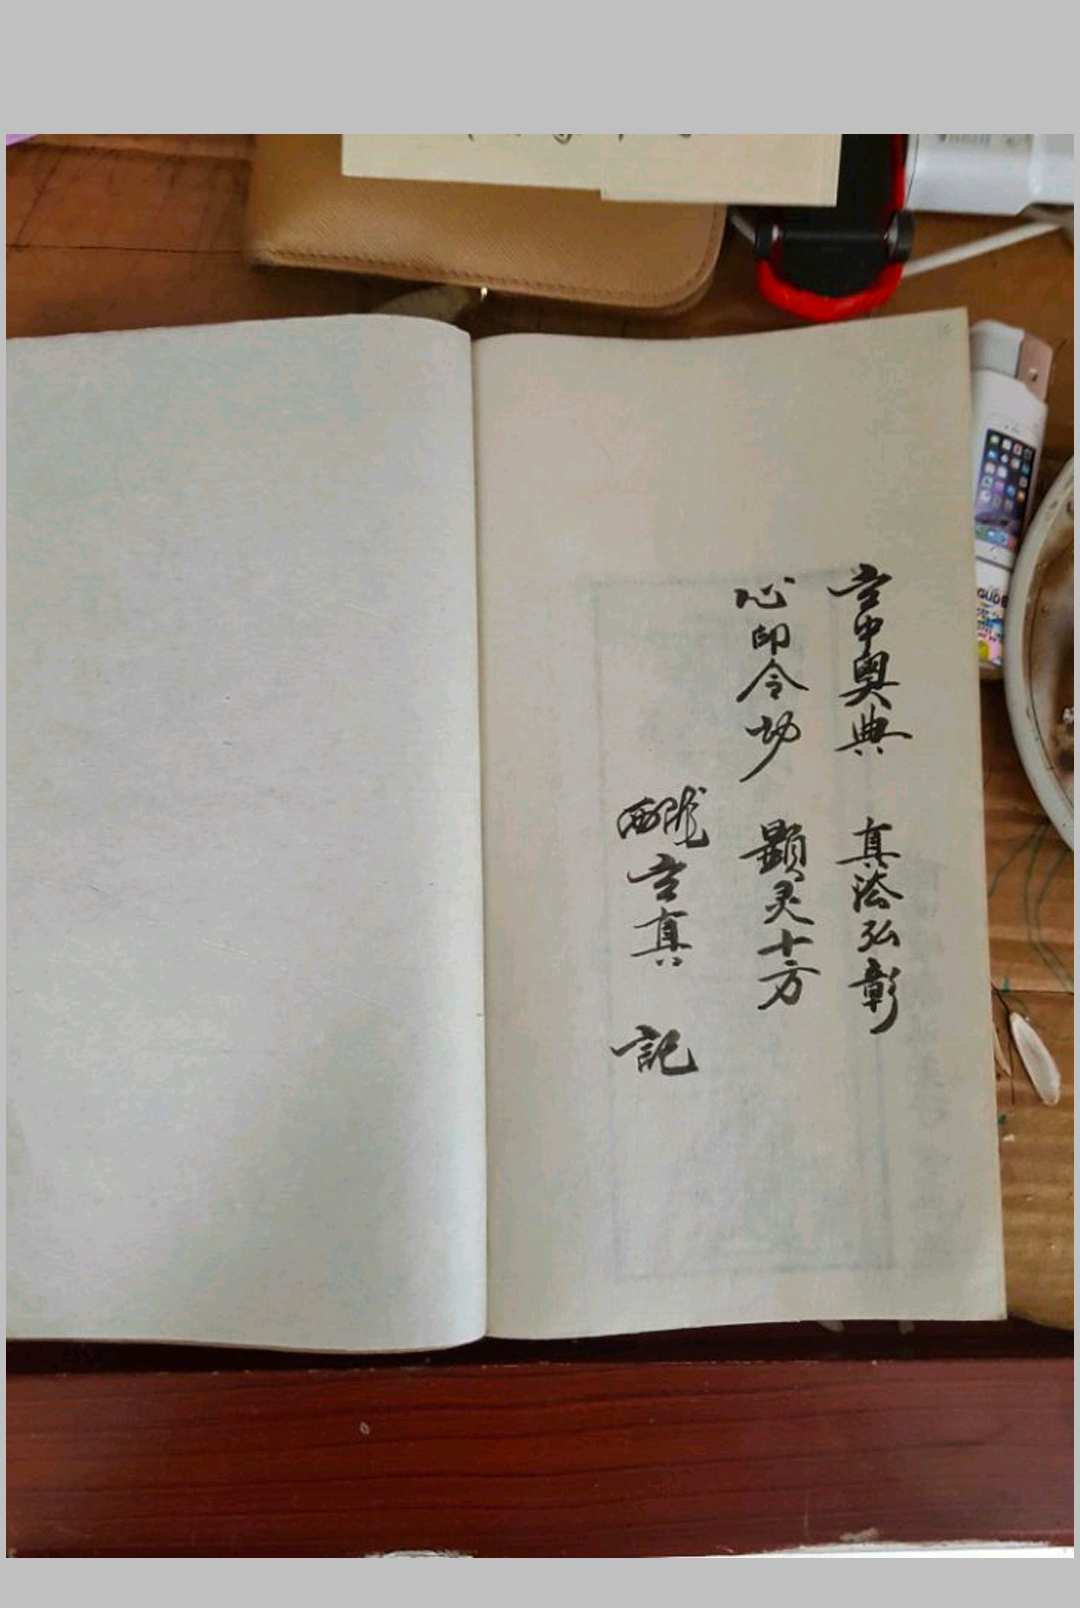 玄中奥典 真法弘彰
心印令 顕灵十方
西陇玄真 記